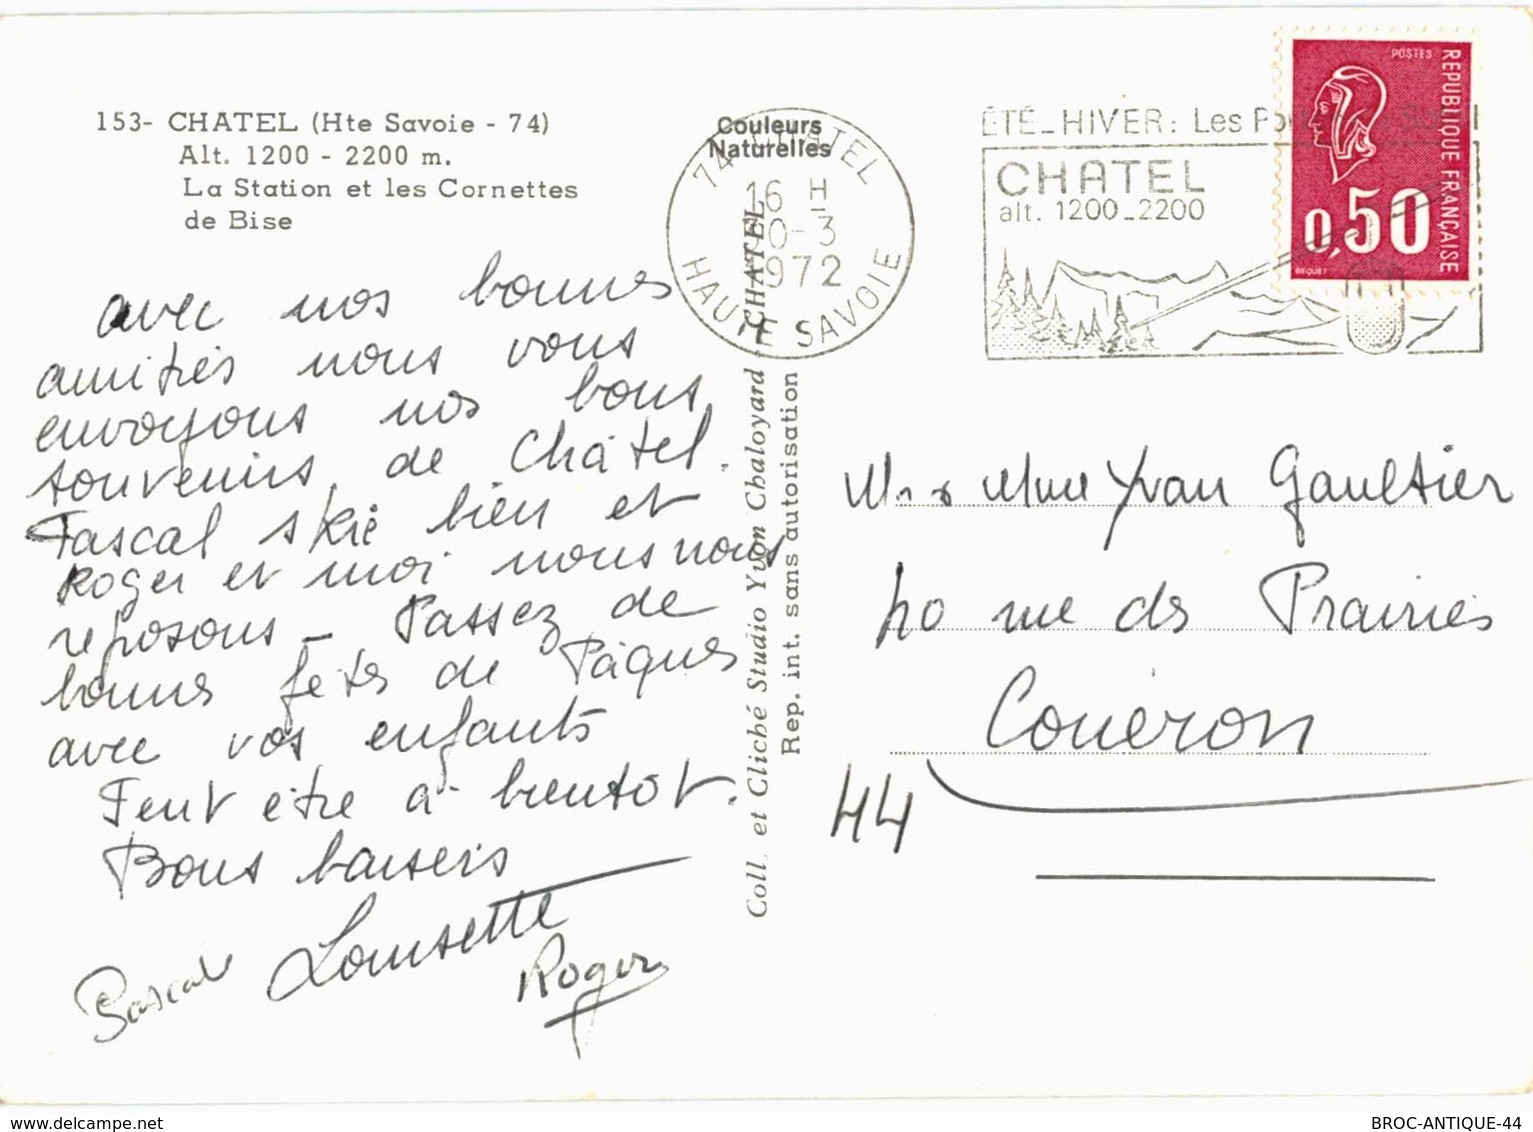 153- CHATEL (Hte Savoie - 74)
Alt. 1200 - 2200 m.
La Station et les Cornettes
de Bise
avec nos bonnes
amitiés nous vous
envoyons nos bons
souvenirs de Châtel.
Pascal skie bien et
Roger et moi nous nous
reposons - Passez de
bonnes fêtes de Pâques
avec vos enfants
Peut être à bientôt.
Bons baisers
Lousette
Pascal
Roger
Couleurs
Naturelles
74 CHATEL
16 H
0-3
1972
HAUTE SAVOIE
CHATEL
Coll. et Cliché Studio Yvon Chaloyard
Rep. int. sans autorisation
ÉTÉ_HIVER: Les
CHATEL
alt. 1200_2200
POSTES
REPUBLIQUE FRANÇAISE
0,50
BEQUET
Mr & Mme Yvan Gaultier
rue des Prairies
Couëron
44
BROC-ANTIQUE-44